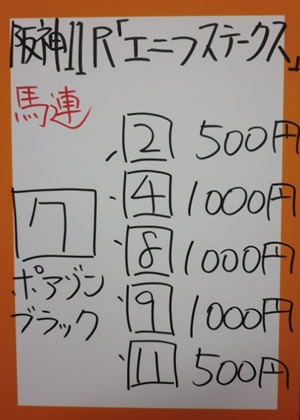 阪神11R「エニフステークス」
馬連
2 500円
4 1000円
7
8 1000円
ポアゾン
9 1000円
ブラック
11 500円